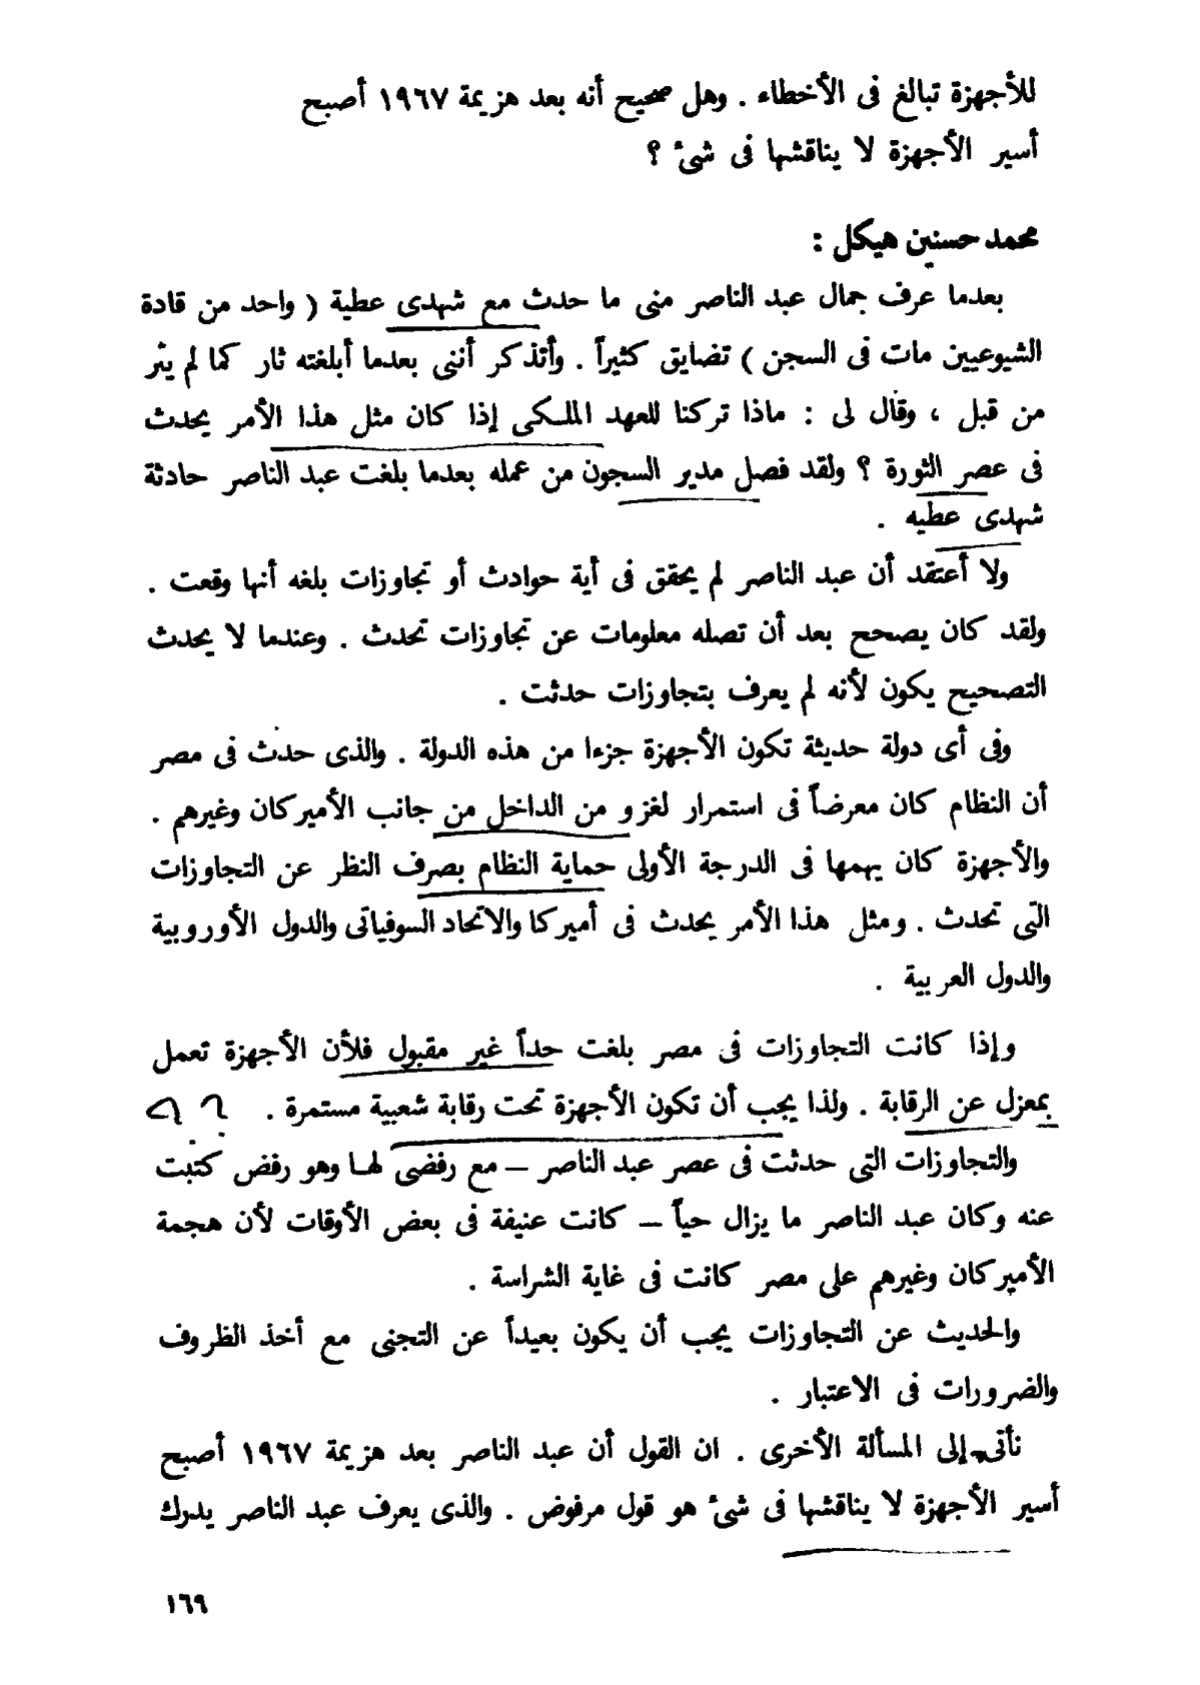 للأجهزة تبالغ فى الأخطاء . وهل صحيح أنه بعد هزيمة ١٩٦٧ أصبح
أسير الأجهزة لا يناقشها فى شئ ؟
محمد حسنين هيكل :
بعدما عرف جمال عبد الناصر منى ما حدث مع شهدى عطية ( واحد من قادة
الشيوعيين مات فى السجن ) تضايق كثيراً . وأتذكر أننى بعدما أبلغته ثار كما لم يثر
من قبل ، وقال لى : ماذا تركنا للعهد الملكى إذا كان مثل هذا الأمر يحدث
فى عصر الثورة ؟ ولقد فصل مدير السجون من عمله بعدما بلغت عبد الناصر حادثة
شهدى عطيه .
ولا أعتقد أن عبد الناصر لم يحقق فى أية حوادث أو تجاوزات بلغه أنها وقعت .
ولقد كان يصحح بعد أن تصله معلومات عن تجاوزات تحدث . وعندما لا يحدث
التصحيح يكون لأنه لم يعرف بتجاوزات حدثت .
وفى أى دولة حديثة تكون الأجهزة جزءا من هذه الدولة . والذى حدث فى مصر
أن النظام كان معرضاً فى استمرار لغزو من الداخل من جانب الأميركان وغيرهم .
والأجهزة كان يهمها فى الدرجة الأولى حماية النظام بصرف النظر عن التجاوزات
التى تحدث . ومثل هذا الأمر يحدث فى أميركا والاتحاد السوفياتى والدول الأوروبية
والدول العربية .
وإذا كانت التجاوزات فى مصر بلغت حداً غير مقبول فلأن الأجهزة تعمل
بمعزل عن الرقابة . ولذا يجب أن تكون الأجهزة تحت رقابة شعبية مستمرة .
والتجاوزات التى حدثت فى عصر عبد الناصر – مع رفضى لها وهو رفض كتبت
عنه وكان عبد الناصر ما يزال حياً – كانت عنيفة فى بعض الأوقات لأن هجمة
الأميركان وغيرهم على مصر كانت فى غاية الشراسة .
والحديث عن التجاوزات يجب أن يكون بعيداً عن التجنى مع أخذ الظروف
والضرورات فى الاعتبار .
نأتى إلى المسألة الأخرى . ان القول أن عبد الناصر بعد هزيمة ١٩٦٧ أصبح
أسير الأجهزة لا يناقشها فى شئ هو قول مرفوض . والذى يعرف عبد الناصر يدرك
١٦٩